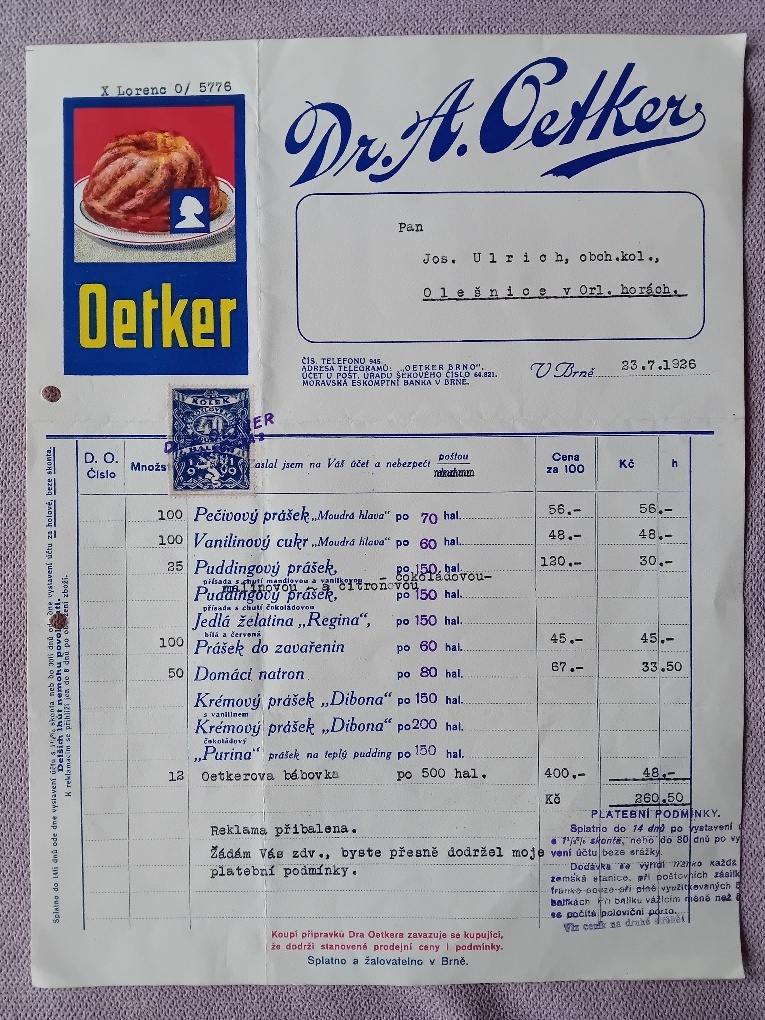 X Lorenc O/ 5776
Dr. A. Oetker
Oetker
Pan
Jos. Ulrich, obch.kol.,
Olešnice v Orl. horách.
ČÍS. TELEFONU 945.
ADRESA TELEGRAMŮ: „OETKER BRNO".
ÚČET U POŠT. ÚŘADU ŠEKOVÉHO ČÍSLO 64.821.
MORAVSKÁ ESKOMPTNÍ BANKA V BRNĚ.
V Brně 23.7.1926
KOLEK
D. O. Číslo
Množst
aslal jsem na Váš účet a nebezpečí poštou
Cena za 100
Kč
h
100 Pečivový prášek „Moudrá hlava" po 70 hal. 56.- 56.-
100 Vanilinový cukr „Moudrá hlava" po 60 hal. 48.- 48.-
25 Puddingový prášek, po 150 hal. 120.- 30.-
přísada s chutí mandlovou a vanilkovou - čokoládovou-
malinovou - a citroňovou
Puddingový prášek, po 150 hal.
přísada s chutí čokoládovou
Jedlá želatina „Regina", po 150 hal.
bílá a červená
100 Prášek do zavařenin po 60 hal. 45.- 45.-
50 Domácí natron po 80 hal. 67.- 33.50
Krémový prášek „Dibona" po 150 hal.
s vanilinem
Krémový prášek „Dibona" po 200 hal.
čokoládový
„Purina" prášek na teplý pudding po 150 hal.
12 Oetkerova bábovka po 500 hal. 400.- 48.-
Kč 260.50
Reklama přibalena.
Žádám Vás zdv., byste přesně dodržel moje
platební podmínky.
PLATEBNÍ PODMÍNKY.
Splatno do 14 dnů po vystavení
s 1½% skonta, neho do 30 dnů po vy
vení účtu beze srážky.
Dodávka se vyřídí franko každá
zemská stanice, při poštovních zásilk
franko pouze při plně využitkovaných 5
balíkách. Při balíku vážícím méně než
se počítá poloviční porto.
Viz ceník na druhé straně!
Koupí přípravků Dra Oetkera zavazuje se kupující,
že dodrží stanovené prodejní ceny i podmínky.
Splatno a žalovatelno v Brně.
Splatno do 14ti dnů ode dne vystavení účtu s 1½% skonta neb do 30ti dnů ode dne vystavení účtu za hotové, beze skonta.
Delších lhůt nemohu povoliti.
K reklamacím se přihlíží jen do 8 dnů po obdržení zboží.